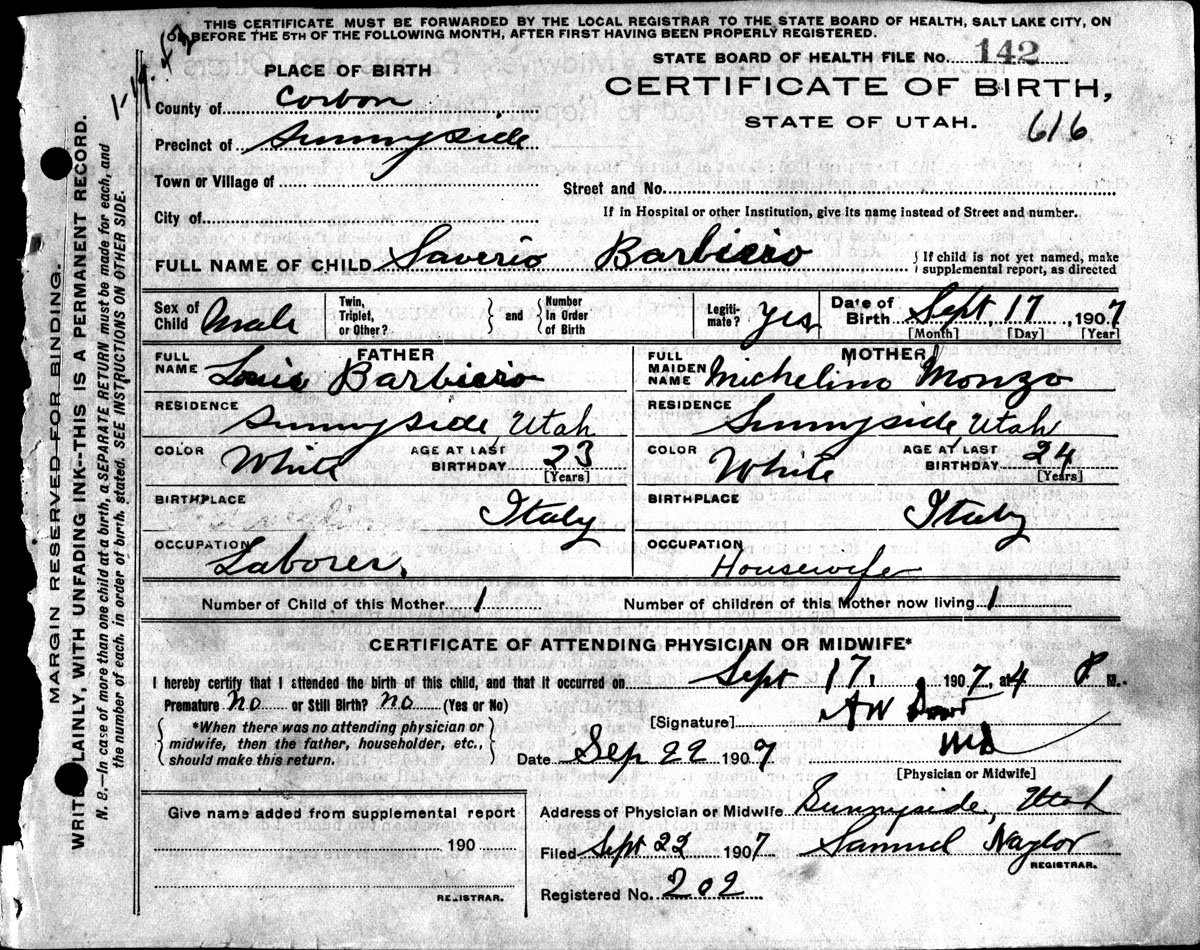 THIS CERTIFICATE MUST BE FORWARDED BY THE LOCAL REGISTRAR TO THE STATE BOARD OF HEALTH, SALT LAKE CITY, ON
OR BEFORE THE 5TH OF THE FOLLOWING MONTH, AFTER FIRST HAVING BEEN PROPERLY REGISTERED.
STATE BOARD OF HEALTH FILE No. 142
PLACE OF BIRTH
CERTIFICATE OF BIRTH,
STATE OF UTAH. 616
County of Corbon
Precinct of Sunnyside
Town or Village of
Street and No.
City of
If in Hospital or other Institution, give its name instead of Street and number.
FULL NAME OF CHILD Saverio Barbiero { If child is not yet named, make
supplemental report, as directed
Sex of Child Male
Twin, Triplet, or Other? } and { Number In Order of Birth
Legitimate? Yes
Date of Birth Sept 17, 1907
[Month] [Day] [Year]
FATHER
FULL NAME Louis Barbiero
MOTHER
FULL MAIDEN NAME Michelina Monzo
RESIDENCE Sunnyside, Utah
RESIDENCE Sunnyside Utah
COLOR White AGE AT LAST BIRTHDAY 23 [Years]
COLOR White AGE AT LAST BIRTHDAY 24 [Years]
BIRTHPLACE Italy
BIRTHPLACE Italy
OCCUPATION Laborer.
OCCUPATION Housewife
Number of Child of this Mother 1
Number of children of this Mother now living 1
CERTIFICATE OF ATTENDING PHYSICIAN OR MIDWIFE*
I hereby certify that I attended the birth of this child, and that it occurred on Sept 17, 1907, at 4 P M.
Premature No or Still Birth? no (Yes or No)
{ *When there was no attending physician or
midwife, then the father, householder, etc.,
should make this return. }
[Signature] A W
MD
Date Sep 22 1907
[Physician or Midwife]
Give name added from supplemental report
190
REGISTRAR.
Address of Physician or Midwife Sunnyside, Utah
Filed Sept 22 1907 Samuel Naylor
REGISTRAR.
Registered No. 202
MARGIN RESERVED FOR BINDING.
WRITE PLAINLY, WITH UNFADING INK--THIS IS A PERMANENT RECORD.
N. B.—In case of more than one child at a birth, a SEPARATE RETURN must be made for each, and
the number of each, in order of birth, stated. SEE INSTRUCTIONS ON OTHER SIDE.